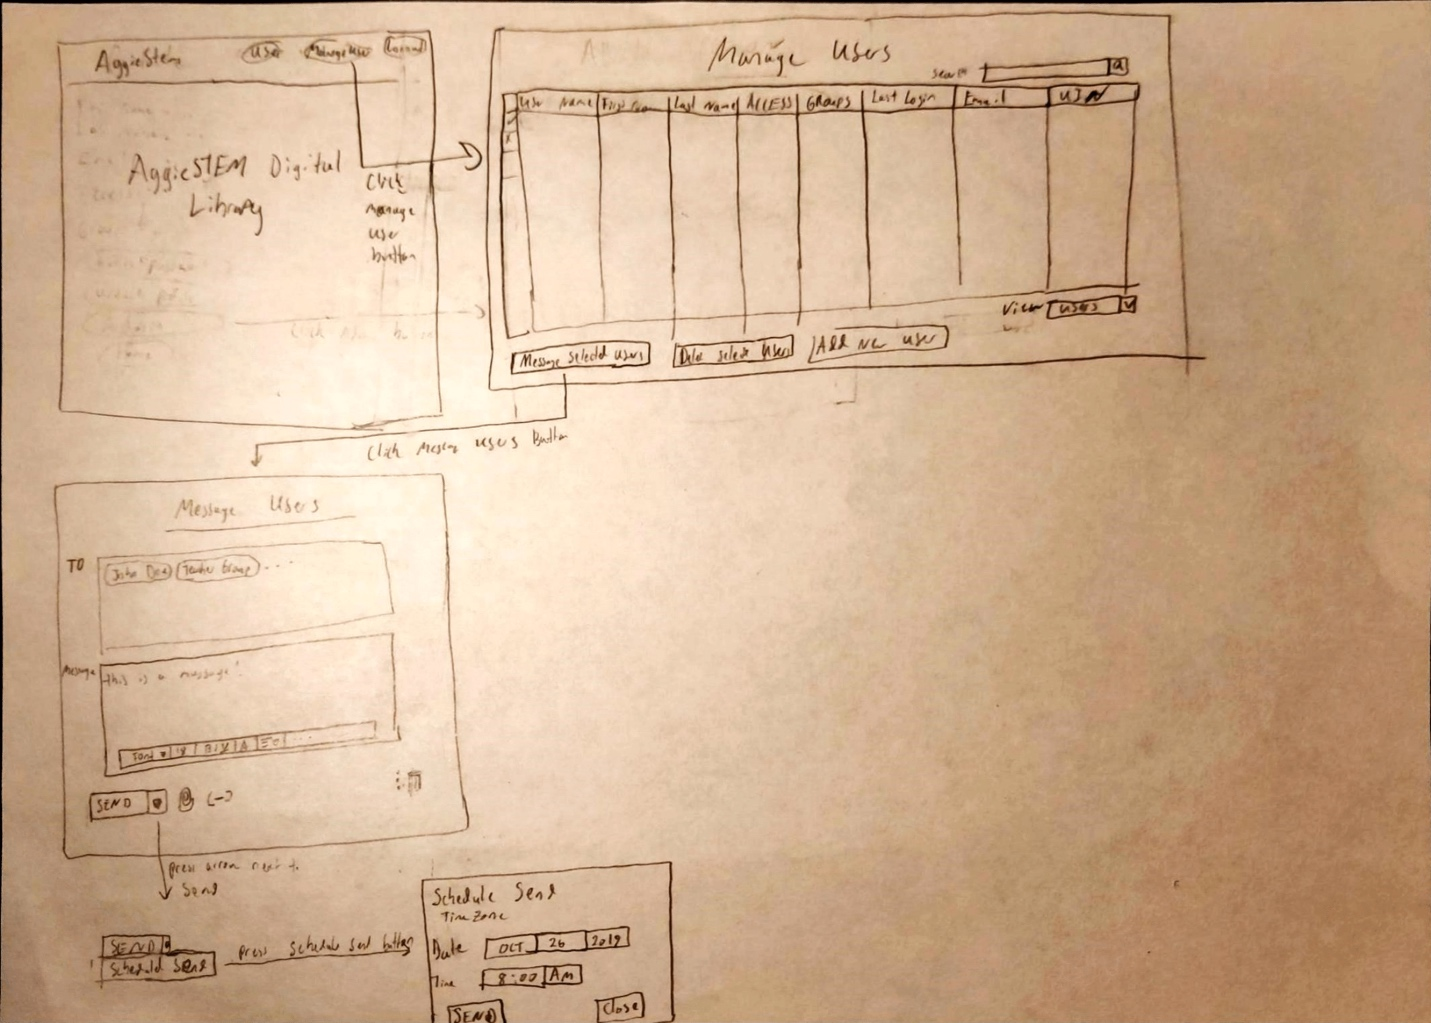 AggieStem User Manage User
AggieSTEM Digital
Library
Click
Manage
User
button
Manage Users
Search
User Name First Name Last Name ACCESS GROUPS Last Login Email UIN
View USERS
Message Selected Users Add New User
Click Message Users Button
Message Users
TO John Doe Teacher Group ...
Message This is a message!
SEND
press arrow next to
Send
SEND
Schedule Send press schedule send button
Schedule Send
Time Zone
Date OCT 26 2019
Time 8:00 Am
SEND Close